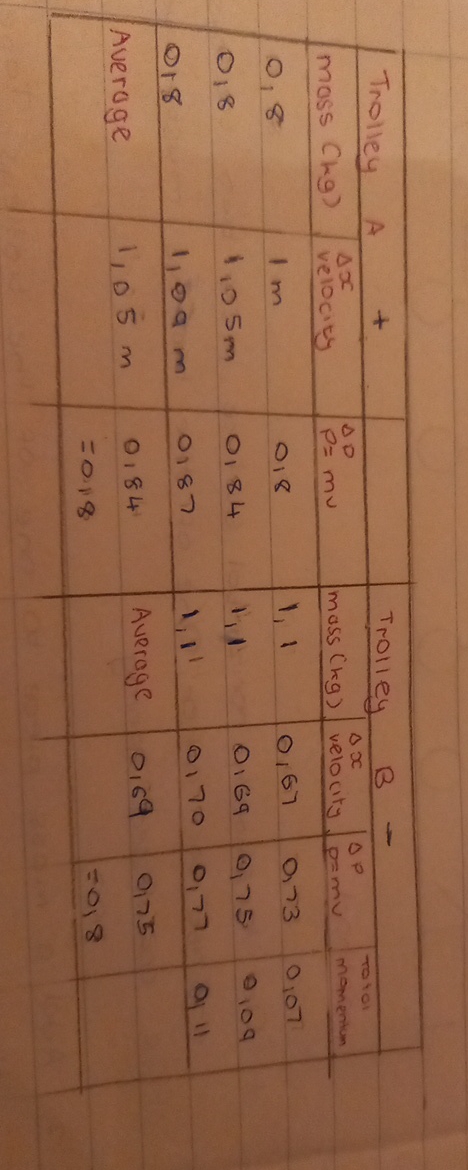 Trolley A + Trolley B -
mass (kg) Δx velocity Δp p=mv mass (kg) Δx velocity Δp p=mv Total momentum
0,8 1 m 0,8 1,1 0,67 0,73 0,07
0,8 1,05m 0,84 1,1 0,69 0,75 0,09
0,8 1,09 m 0,87 1,11 0,70 0,77 0,11
Average 1,05 m 0,84 Average 0,69 0,75
=0,8 =0,8